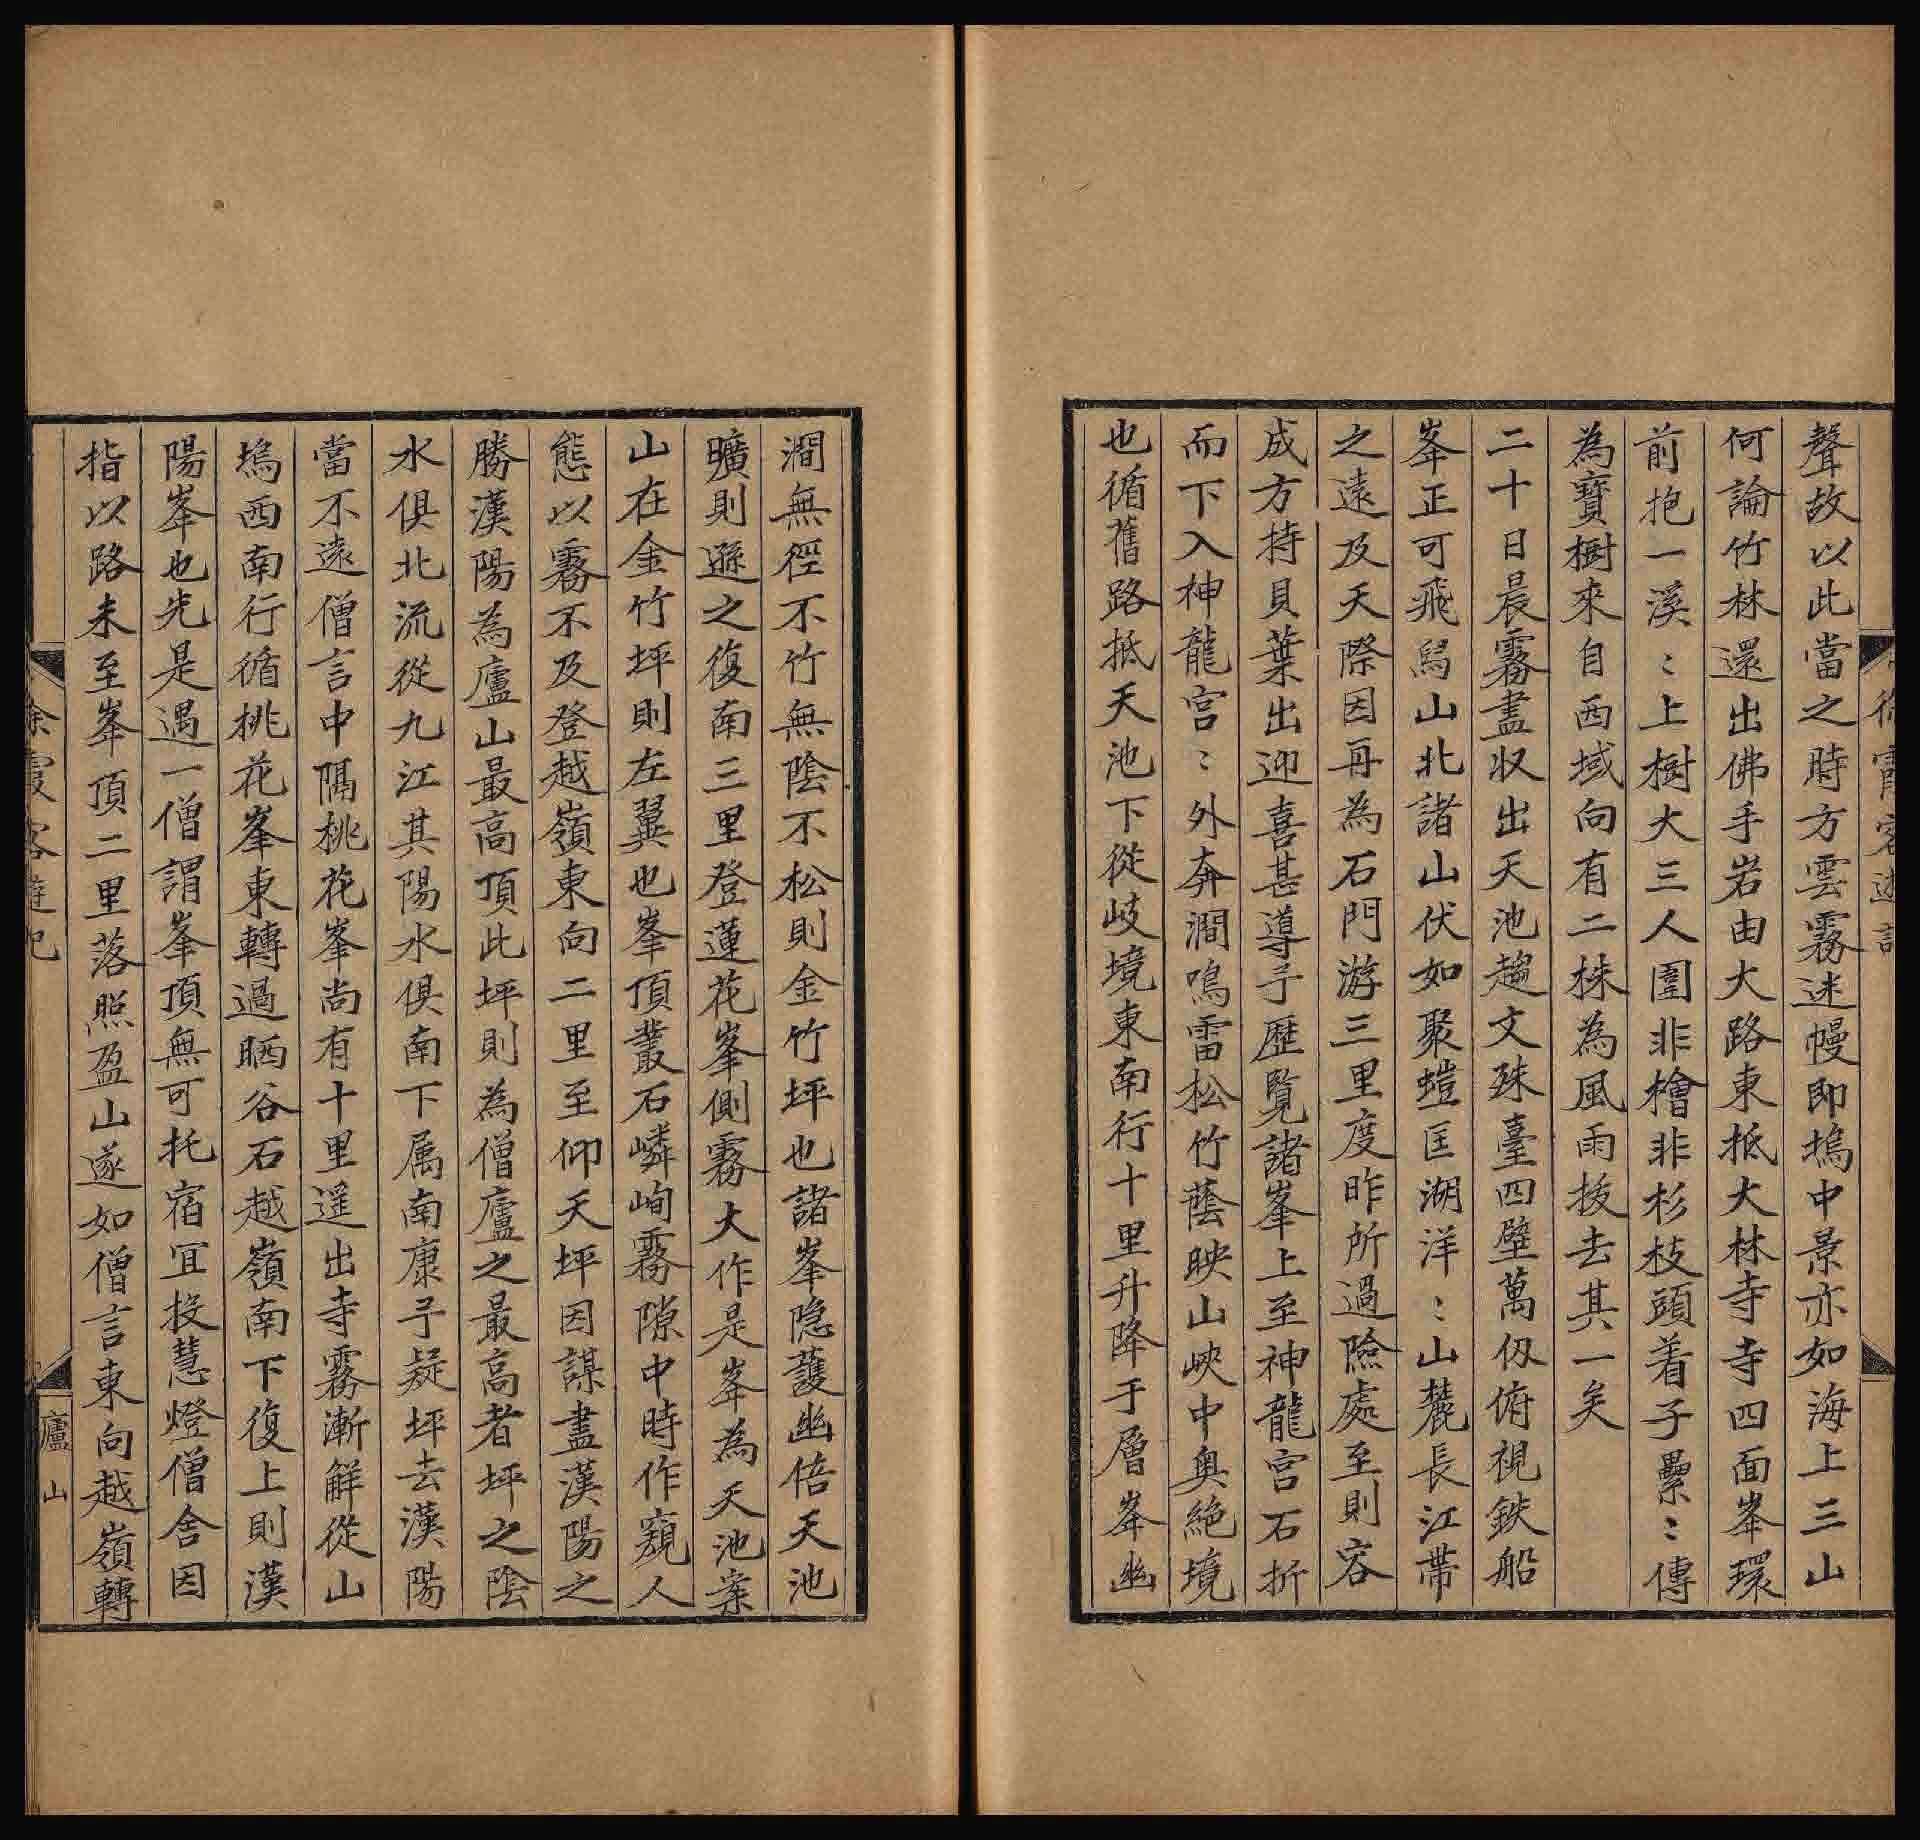 聲故以此當之時方雲霧迷幔即塢中景亦如海上三山
何論竹林還出佛手岩由大路東抵大林寺寺四面峯環
前抱一溪〻上樹大三人圍非檜非杉枝頭着子纍〻傳
為寶樹來自西域向有二株為風雨拔去其一矣
二十日晨霧盡収出天池趨文殊臺四壁萬仞俯視鉄船
峯正可飛舄山北諸山伏如聚螘匡湖洋〻山麓長江帶
之遠及天際因再為石門游三里度昨所過險處至則容
成方持貝葉出迎喜甚導予歷覽諸峯上至神龍宮石折
而下入神龍宮〻外奔澗鳴雷松竹蔭映山峽中奥絕境
也循舊路抵天池下從岐境東南行十里升降于層峯幽
澗無徑不竹無陰不松則金竹坪也諸峯隐護幽倍天池
曠則遜之復南三里登蓮花峯側霧大作是峯為天池案
山在金竹坪則左翼也峯頂叢石嶙峋霧隙中時作窺人
態以霧不及登越嶺東向二里至仰天坪因謀盡漢陽之
勝漢陽為廬山最高頂此坪則為僧廬之最高者坪之陰
水俱北流從九江其陽水俱南下属南康予疑坪去漢陽
當不遠僧言中隔桃花峯尚有十里遥出寺霧漸解從山
塢西南行循桃花峯東轉過晒谷石越嶺南下復上則漢
陽峯也先是遇一僧謂峯頂無可托宿宜投慧燈僧舍因
指以路未至峯頂二里落照盈山遂如僧言東向越嶺轉
徐霞客遊記
廬山